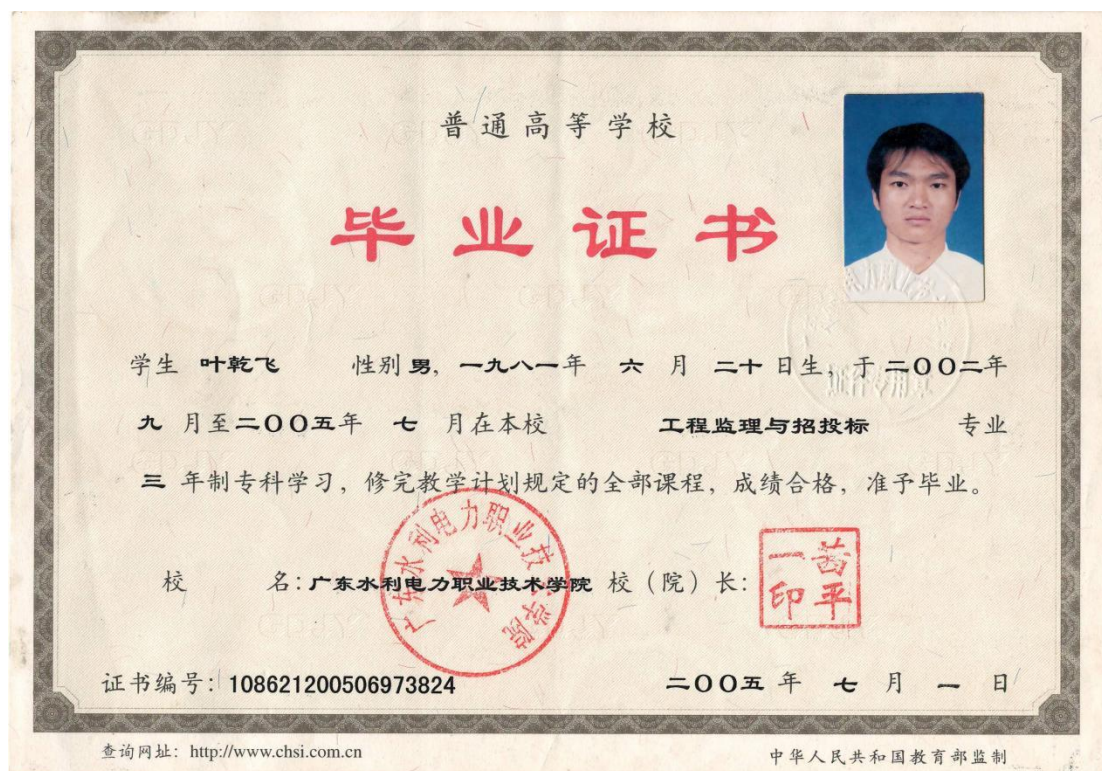 普通高等学校
毕业证书
学生 叶乾飞 性别 男, 一九八一年 六 月 二十 日生, 于 二〇〇二年
九 月至二〇〇五年 七 月在本校 工程监理与招投标 专业
三 年制专科学习, 修完教学计划规定的全部课程, 成绩合格, 准予毕业。
校 名: 广东水利电力职业技术学院 校（院）长:
广东水利电力职业技术学院
证书编号: 108621200506973824 二〇〇五 年 七 月 一 日
查询网址: http://www.chsi.com.cn 中华人民共和国教育部监制